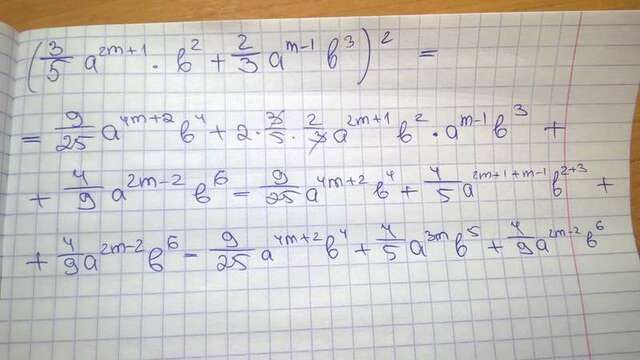 (3/5 a^{2m+1} · b^2 + 2/3 a^{m-1} b^3)^2 =
= 9/25 a^{4m+2} b^4 + 2 · 3/5 · 2/3 a^{2m+1} b^2 · a^{m-1} b^3 +
+ 4/9 a^{2m-2} b^6 = 9/25 a^{4m+2} b^4 + 4/5 a^{2m+1+m-1} b^{2+3} +
+ 4/9 a^{2m-2} b^6 = 9/25 a^{4m+2} b^4 + 4/5 a^{3m} b^5 + 4/9 a^{2m-2} b^6